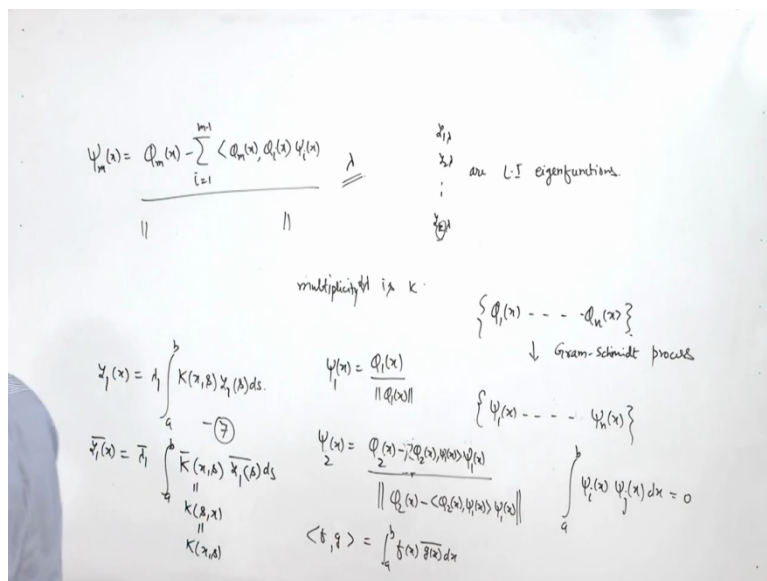 ψ_m(x) = φ_m(x) - Σ_{i=1}^{m-1} <φ_m(x), φ_i(x) ψ_i(x)
|| ||
λ
z_{1λ}
z_{2λ}
⋮
are L.I eigenfunctions.
multiplicity λ is K.
{φ_1(x) - - - - φ_n(x)}
↓ Gram-schmidt process
{ψ_1(x) - - - - ψ_n(x)}
∫_a^b ψ_i(x) ψ_j(x) dx = 0
z_1(x) = λ_1 ∫_a^b K(x,s) z_1(s) ds.
- ⑦
\overline{z_1}(x) = \overline{λ_1} ∫_a^b \overline{K}(x,s) \overline{z_1(s)} ds
||
K(s,x)
||
K(x,s)
ψ_1(x) = φ_1(x) / ||φ_1(x)||
ψ_2(x) = φ_2(x) - <φ_2(x), ψ_1(x)> ψ_1(x) / || φ_2(x) - <φ_2(x), ψ_1(x)> ψ_1(x) ||
<f, g> = ∫_a^b f(x) \overline{g(x)} dx